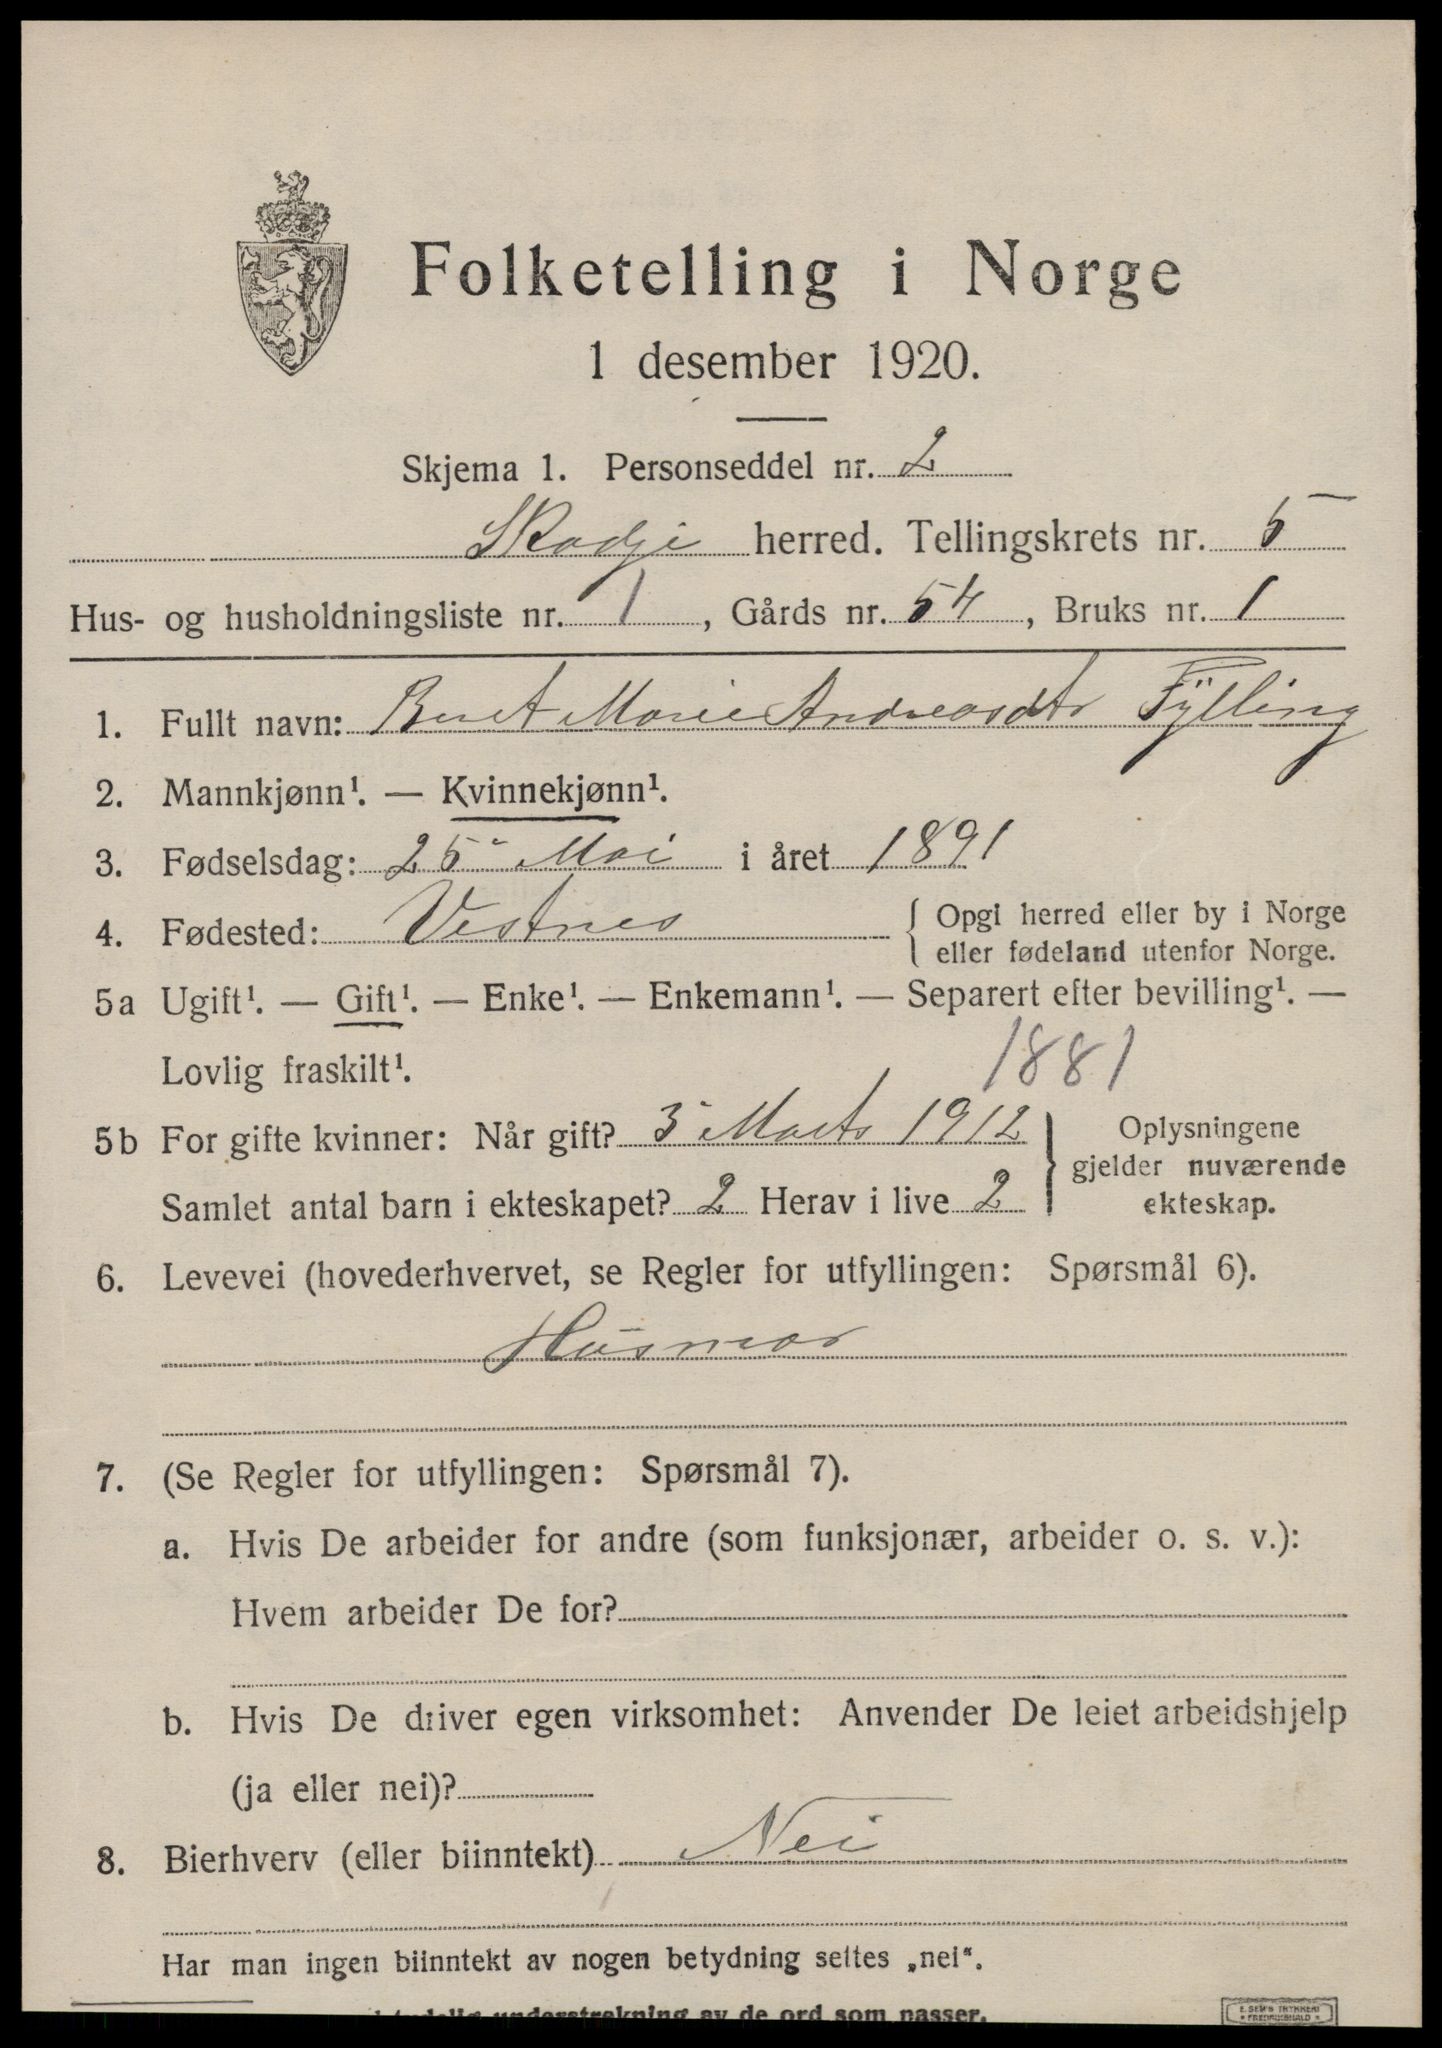 Folketelling i Norge
1 desember 1920.
Skjema 1. Personseddel nr. 2
Skodje herred. Tellingskrets nr. 5
Hus- og husholdningsliste nr. 1, Gårds nr. 54, Bruks nr. 1
1. Fullt navn: Beret Marie Andreasdtr Fylling
2. Mannkjønn¹. — Kvinnekjønn¹.
3. Fødselsdag: 25 Mai i året 1891
4. Fødested: Vestnes { Opgi herred eller by i Norge
eller fødeland utenfor Norge.
5a Ugift¹. — Gift¹. — Enke¹. — Enkemann¹. — Separert efter bevilling¹. —
Lovlig fraskilt¹. 1881
5b For gifte kvinner: Når gift? 3 Marts 1912 } Oplysningene
gjelder nuværende
Samlet antal barn i ekteskapet? 2 Herav i live 2 ekteskap.
6. Levevei (hovederhvervet, se Regler for utfyllingen: Spørsmål 6).
Husmor
7. (Se Regler for utfyllingen: Spørsmål 7).
a. Hvis De arbeider for andre (som funksjonær, arbeider o. s. v.):
Hvem arbeider De for?
b. Hvis De driver egen virksomhet: Anvender De leiet arbeidshjelp
(ja eller nei)?
8. Bierhverv (eller biinntekt) Nei
Har man ingen biinntekt av nogen betydning settes „nei“.
understrekning av de ord som passer.
E. SEM'S TRYKKERI
FREDRIKSHALD